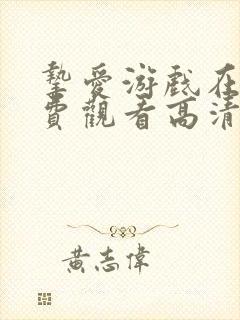 摯愛游戲在
費觀看高清
黃志偉